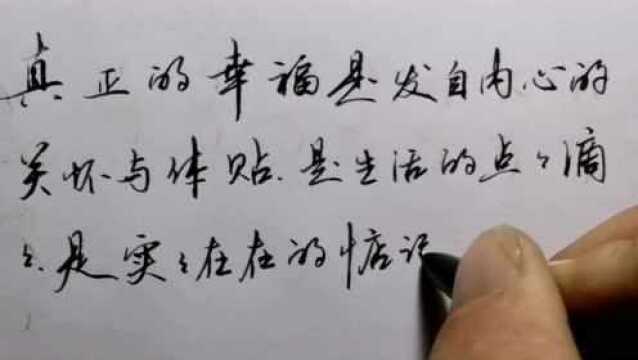 真正的幸福是发自内心的
关怀与体贴.是生活的点々滴
々.是实々在在的惦记